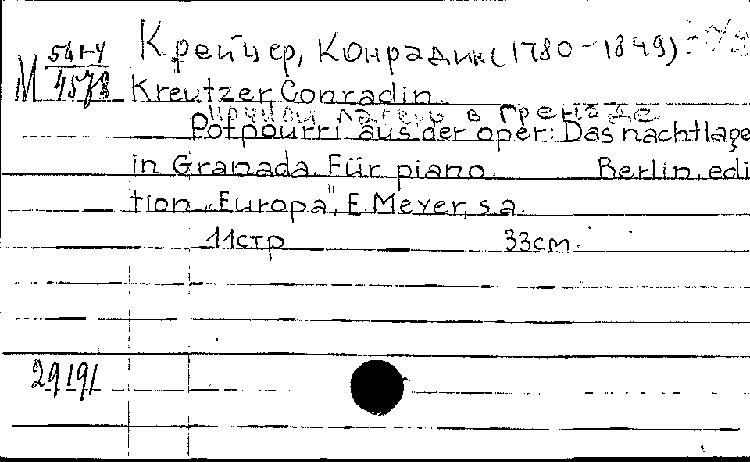 Крейцер, Конрадин (1780-1849)
М 541-4
4578
Kreutzer, Conradin.
лагерь в Гренаде
Potpourri aus der oper: Das nachtlage
in Granada. Für piano. Berlin, edi
tion „Europa", E. Meyer, s.a.
11 стр 33 cm.
29191